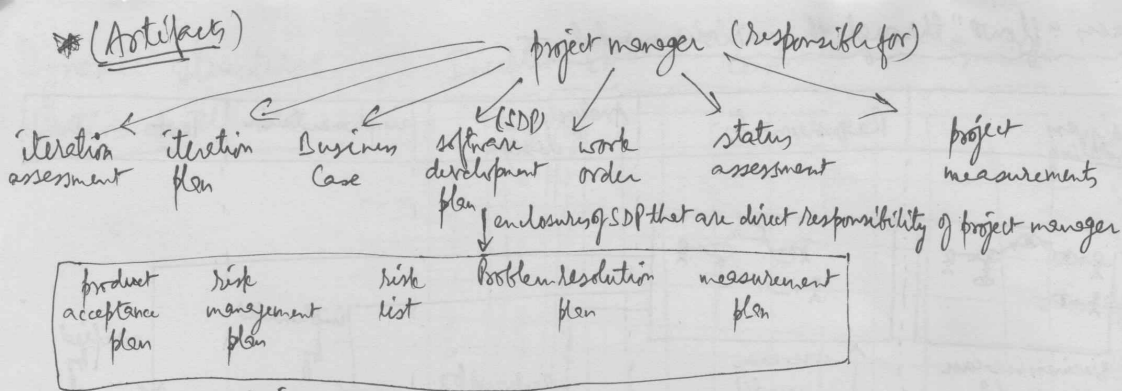 (Artifacts)
project manager (responsible for)
iteration assessment
iteration plan
Business Case
(SDP) software development plan
work order
status assessment
project measurements
enclosures of SDP that are direct responsibility of project manager
product acceptance plan
risk management plan
risk list
Problem resolution plan
measurement plan